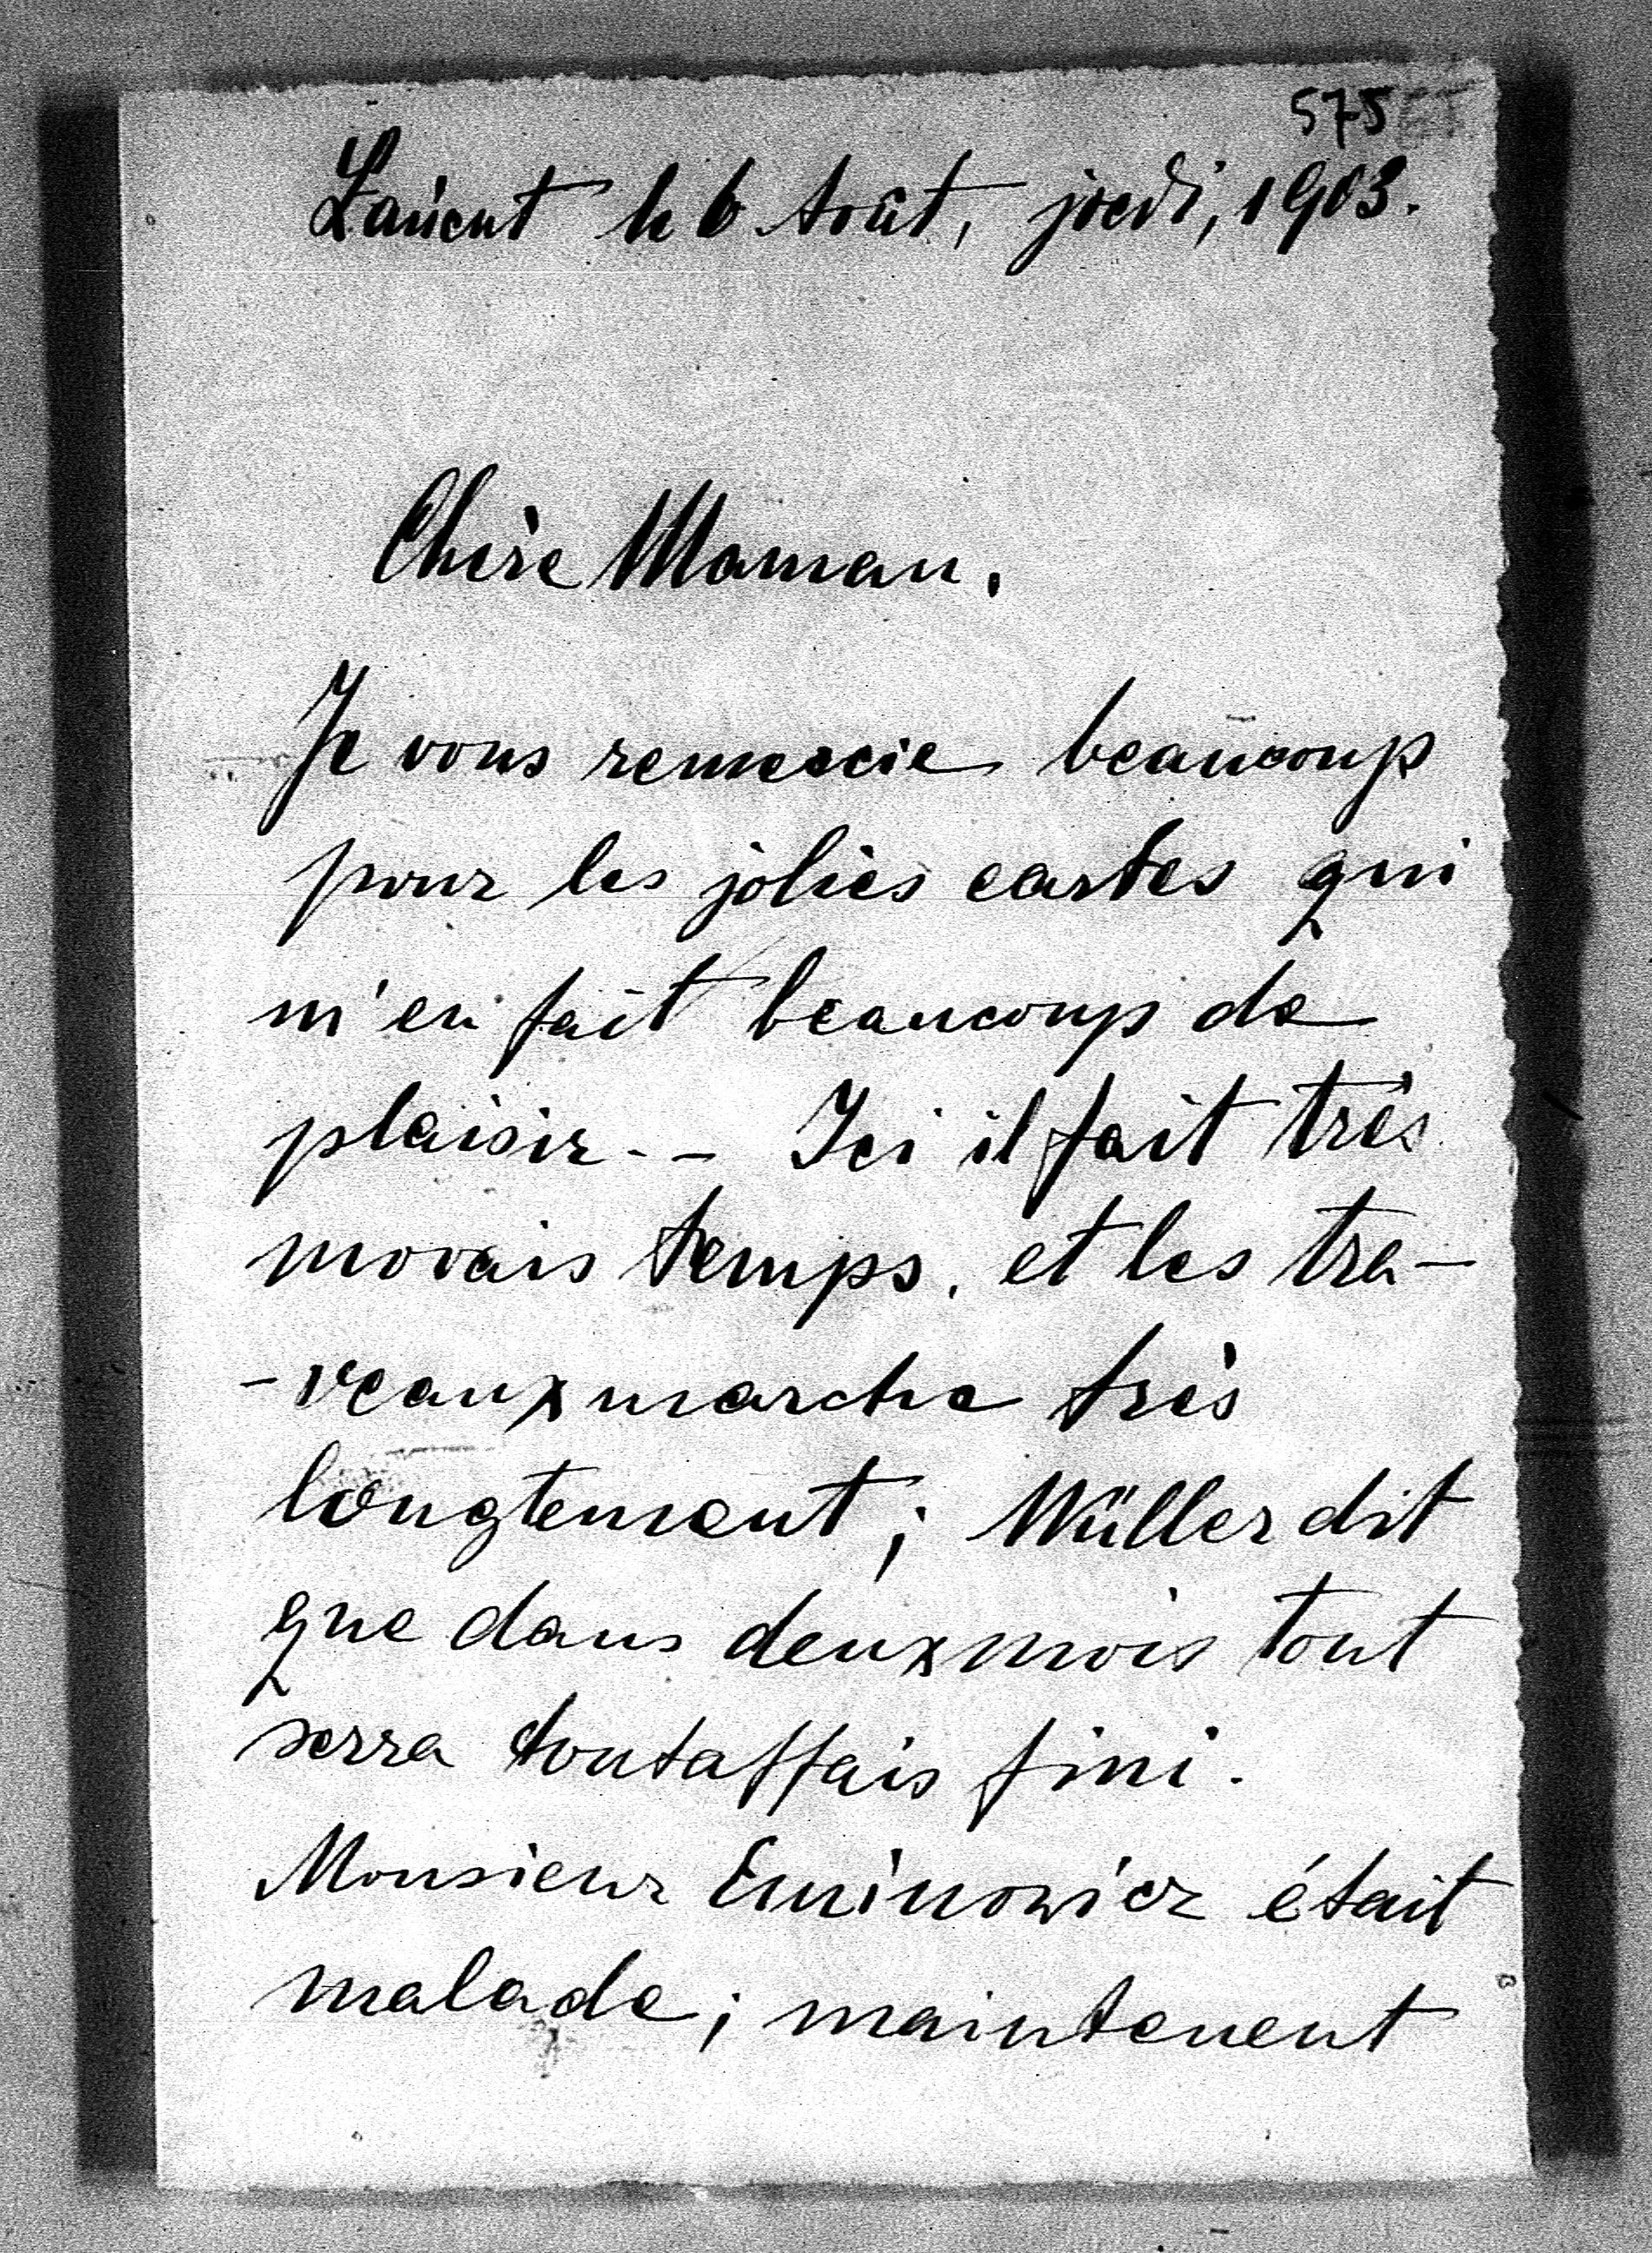 575
Łańcut le 6 Août, joedi, 1903.
Chère Maman.
Je vous remercie beaucoup
pour les jolies cartes qui
m'en fait beaucoup de
plaisir. - Ici il fait très
movais temps, et les tra-
-veaux marche très
longtement; Müller dit
que dans deux mois tout
serra toutaffais fini.
Monsieur Eminowicz était
malade; maintenent